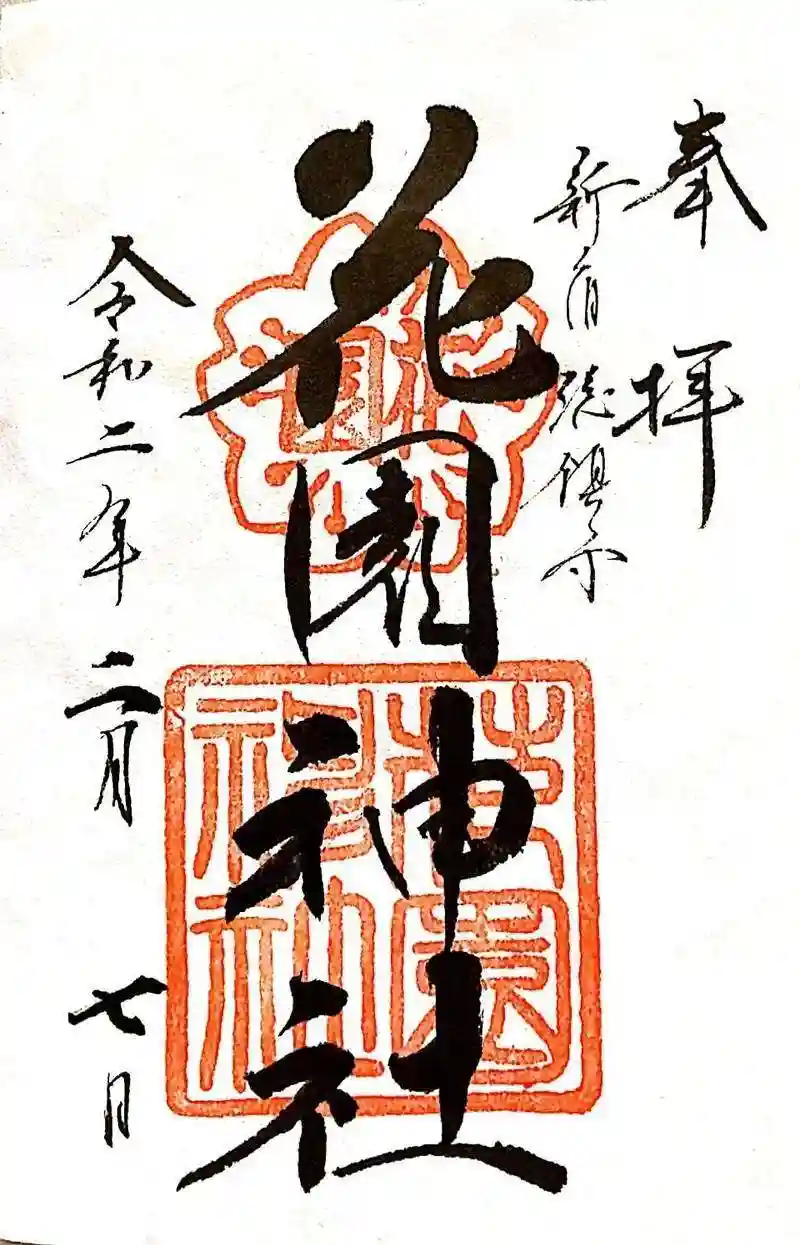 奉拝
新宿総鎮守
花園神社
花園
花園神社
令和二年二月七日